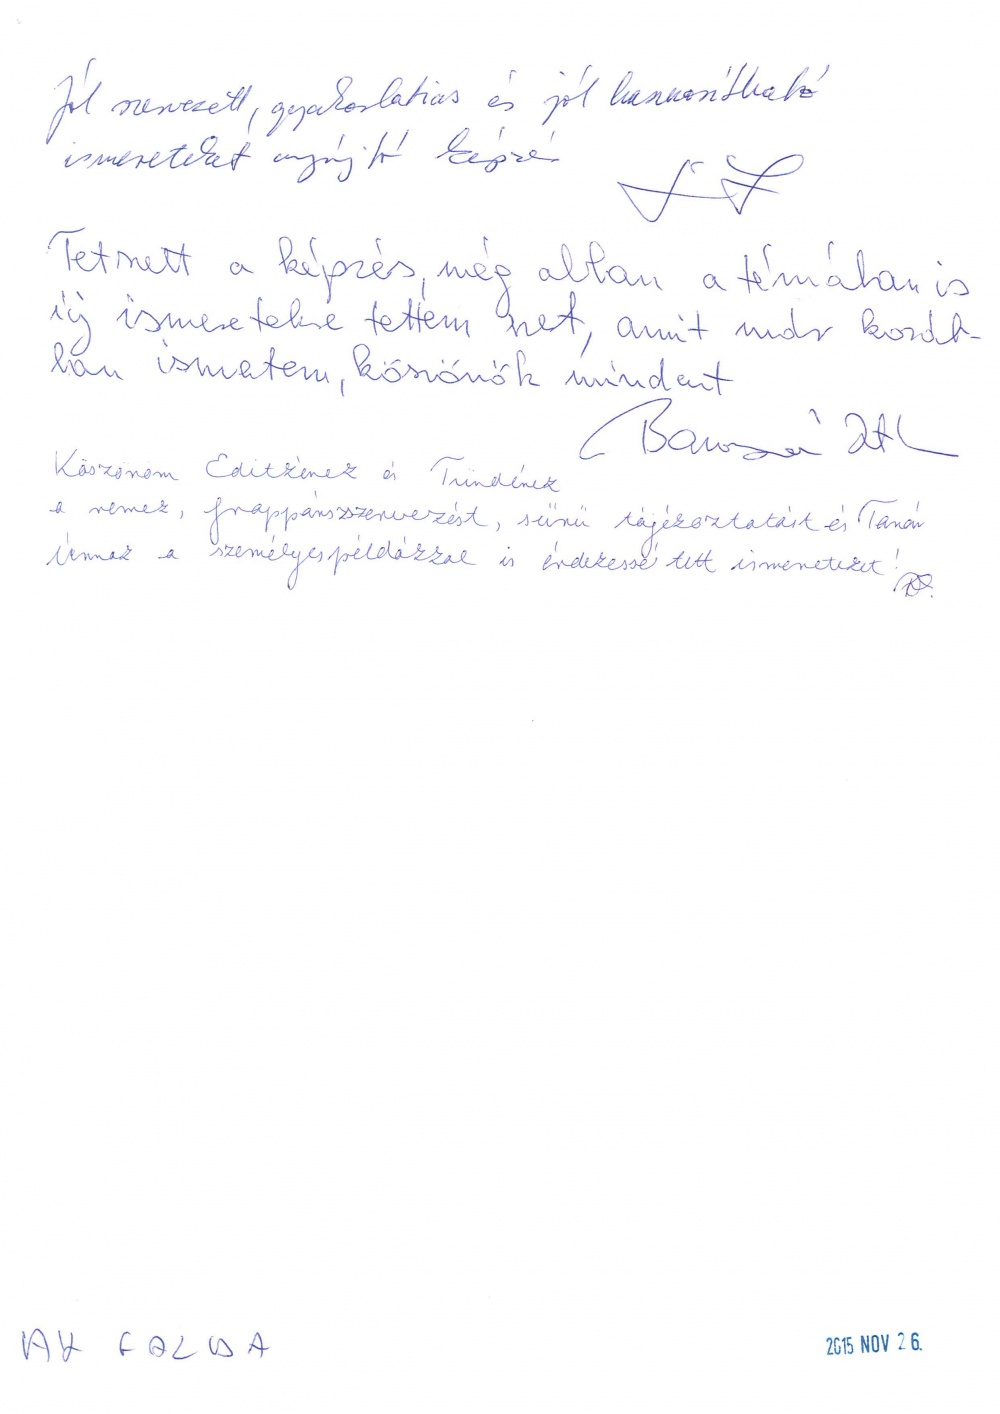 Jól szervezett, gyakorlatias és jól hasznosítható
ismereteket nyújtó képzés
Tetszett a képzés, még abban a témában is
új ismeretekre tettem szert, amit már koráb-
ban ismertem, köszönök mindent
Köszönöm Editkének és Tündének
a remek, frappáns szervezést, sűrű tájékoztatást és Tanár
Úrnak a személyes példákkal is érdekessé tett ismereteket!
2015 NOV 26.